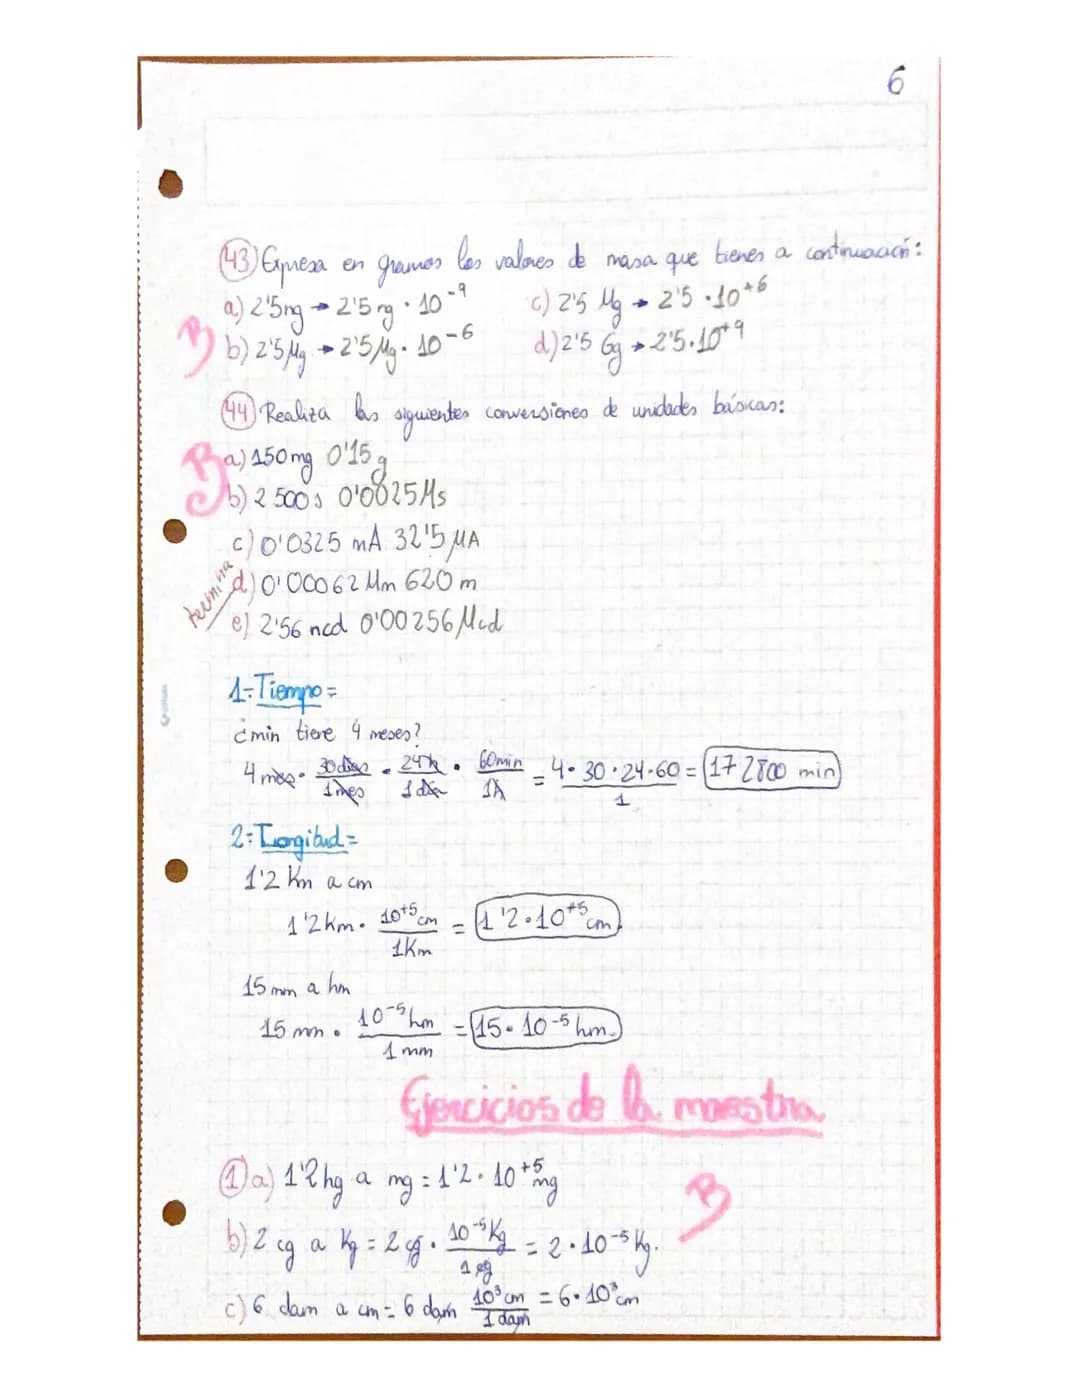 6
43) Expresa en gramos los valores de masa que tienes a continuación:
a) 2'5ng → 2'5 ng · 10⁻⁹ c) 2'5 Mg → 2'5 · 10⁺⁶
B b) 2'5 Mg → 2'5 Mg · 10⁻⁶ d) 2'5 Gg → 2'5 · 10⁺⁹
44) Realiza las siguientes conversiones de unidades básicas:
B a) 150 mg 0'15 g
b) 2 500 s 0'0025 Ms
c) 0'0325 mA 32'5 μA
termina d) 0'00062 Mm 620 m
e) 2'56 ncd 0'00256 Mcd
1-Tiempo=
¿min tiene 4 meses?
4 mes · 30 días/1 mes · 24 h/1 día · 60 min/1h = 4 · 30 · 24 · 60/1 = 172800 min
2-Longitud=
1'2 Km a cm
1'2 km · 10⁺⁵ cm/1Km = 1'2 · 10⁺⁵ cm.
15 mm a hm
15 mm · 10⁻⁵ hm/1 mm = 15 · 10⁻⁵ hm.
Ejercicios de la maestra
1) a) 1'2 hg a mg = 1'2 · 10⁺⁵ mg
B
b) 2 cg a Kg = 2 cg · 10⁻⁵ Kg/1 cg = 2 · 10⁻⁵ Kg.
c) 6 dam a cm = 6 dam 10³ cm/1 dam = 6 · 10³ cm